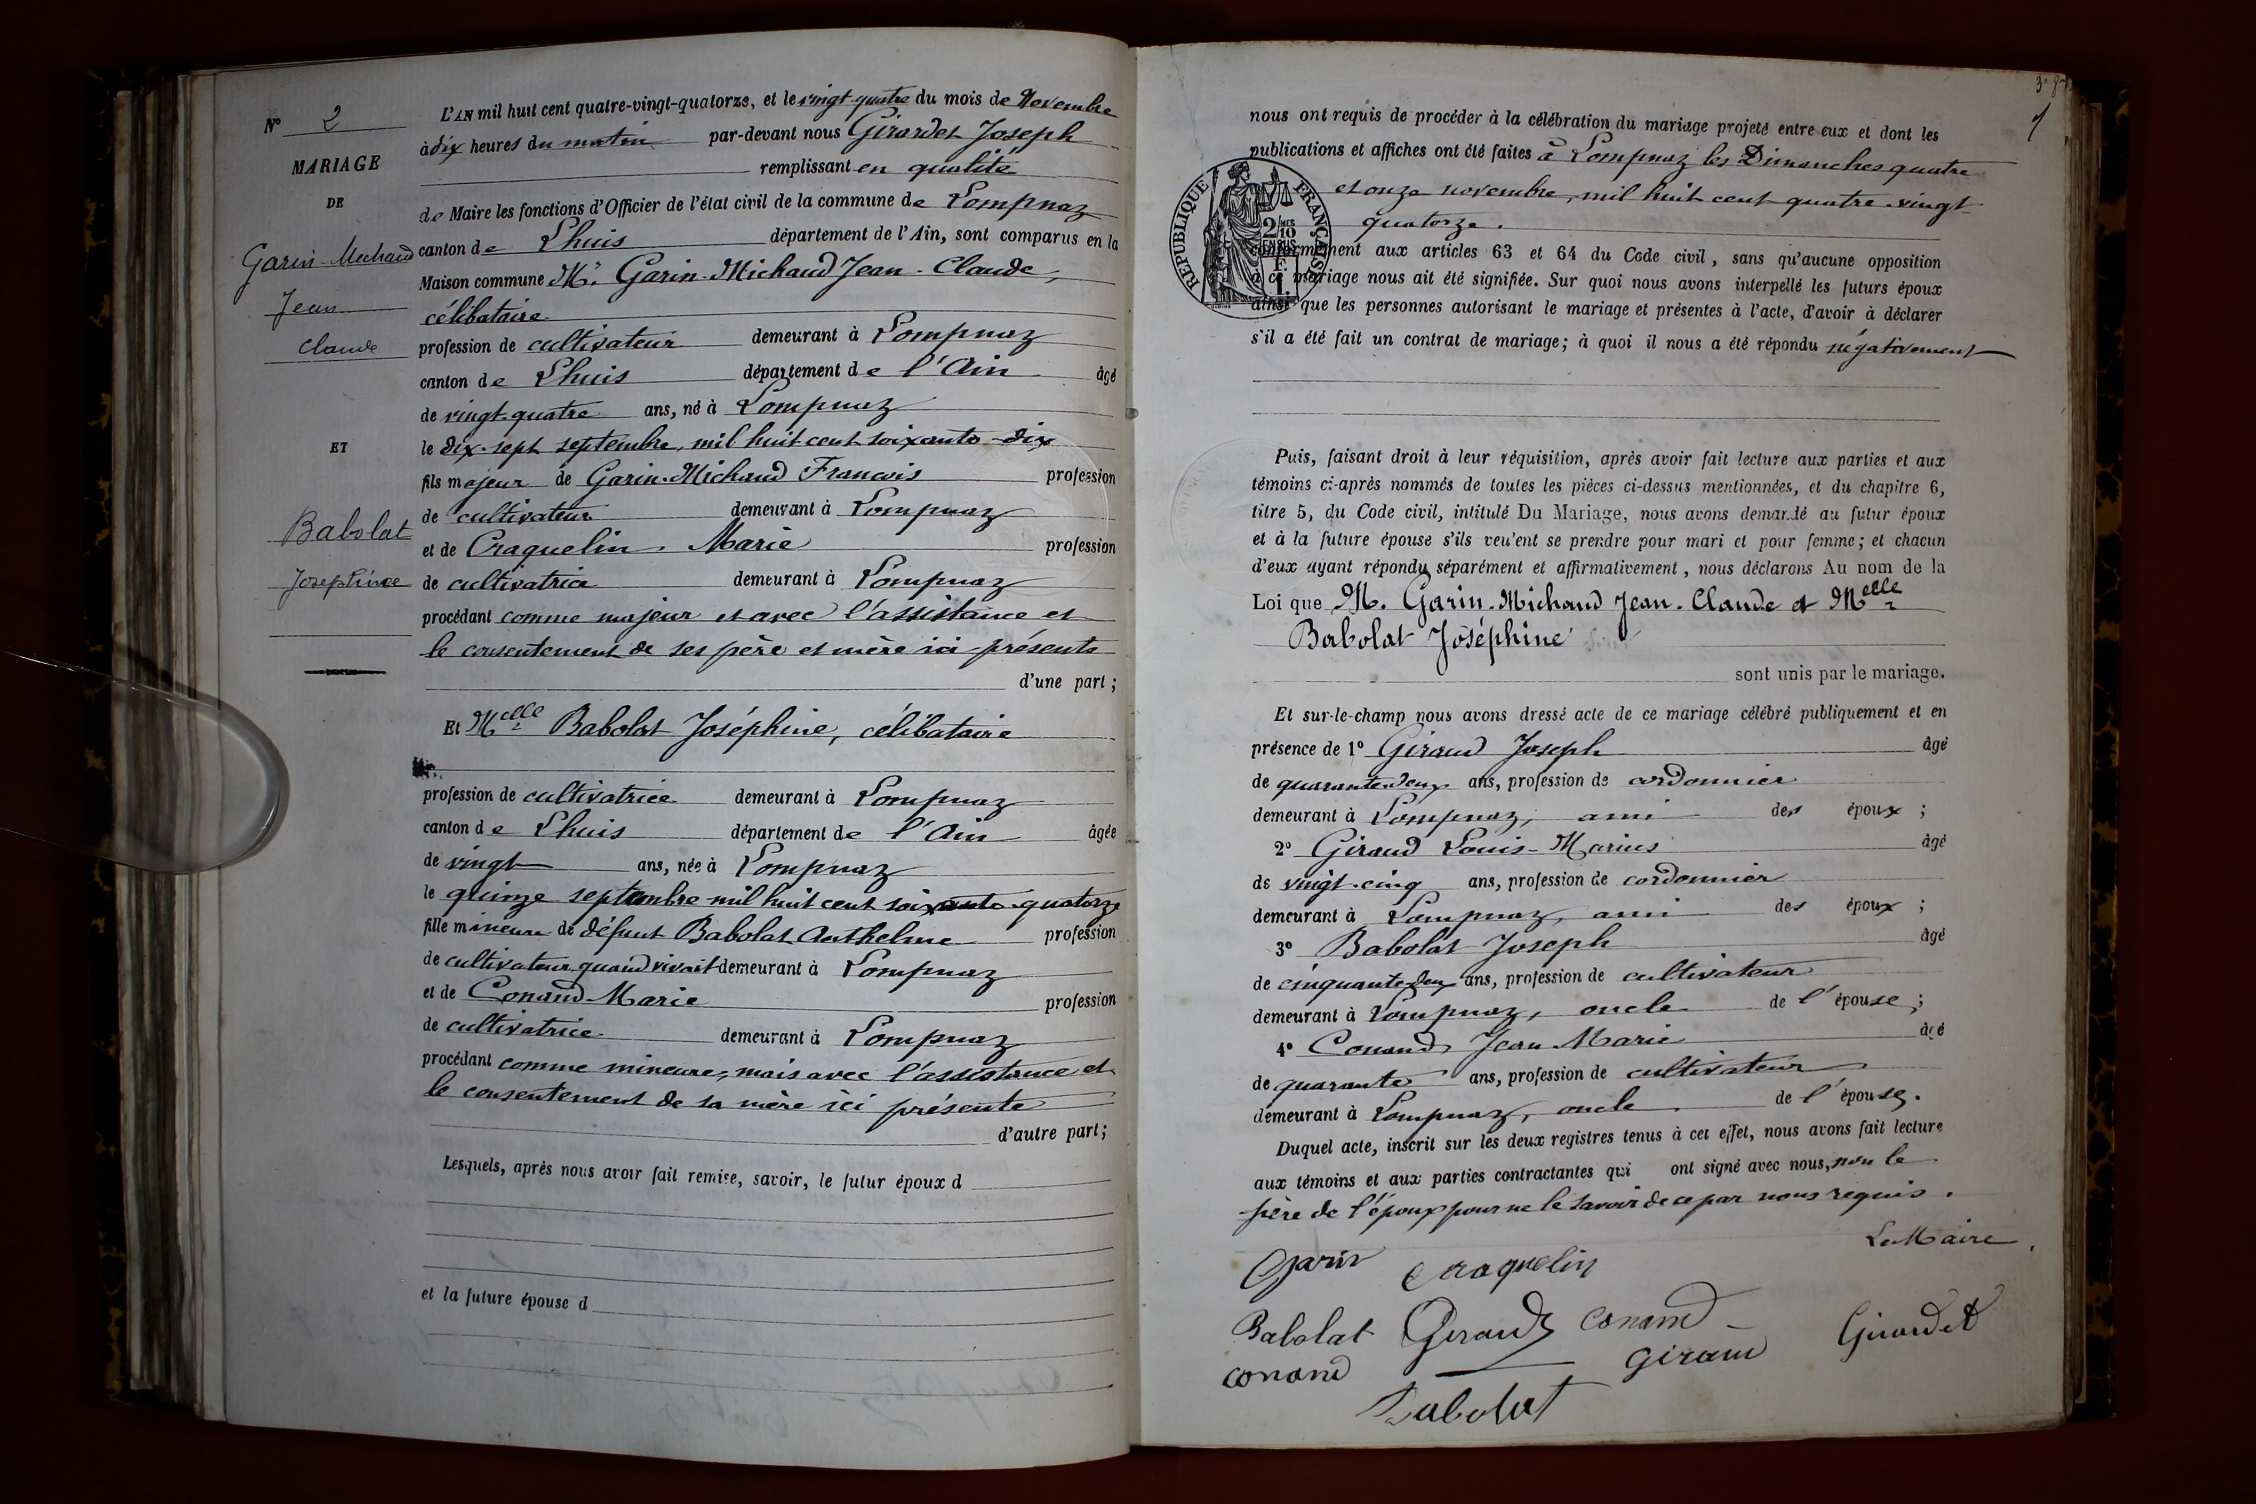 N° 2
MARIAGE
DE
Garin-Michaud
Jean
Claude
ET
Babolat
Joséphine
L'AN mil huit cent quatre-vingt-quatorze, et le vingt-quatre du mois de Novembre
à dix heures du matin par-devant nous Girardet Joseph
remplissant en qualité
de Maire les fonctions d'Officier de l'état civil de la commune de Lompnaz
canton de Lhuis département de l'Ain, sont comparus en la
Maison commune Mr. Garin-Michaud Jean-Claude,
célibataire
profession de cultivateur demeurant à Lompnaz
canton de Lhuis département de l'Ain âgé
de vingt-quatre ans, né à Lompnaz
le dix-sept septembre, mil huit cent soixante-dix
fils majeur de Garin-Michaud Francois profession
de cultivateur demeurant à Lompnaz
et de Craquelin Marie profession
de cultivatrice demeurant à Lompnaz
procédant comme majeur et avec l'assistance et
le consentement de ses père et mère ici présents
d'une part ;
Et Melle Babolat Joséphine, célibataire
profession de cultivatrice demeurant à Lompnaz
canton de Lhuis département de l'Ain âgée
de vingt ans, née à Lompnaz
le quinze septembre mil huit cent soixante-quatorze
fille mineure de défunt Babolat Anthelme profession
de cultivateur quand vivait demeurant à Lompnaz
et de Conand Marie profession
de cultivatrice demeurant à Lompnaz
procédant comme mineure, mais avec l'assistance et
le consentement de sa mère ici présente
d'autre part ;
Lesquels, après nous avoir fait remise, savoir, le futur époux d
et la future épouse d
387
1
nous ont requis de procéder à la célébration du mariage projeté entre eux et dont les
publications et affiches ont été faites à Lompnaz les Dimanches quatre
et onze novembre, mil huit cent quatre-vingt-
quatorze.
RÉPUBLIQUE FRANÇAISE
2/10 EN SUS
1 F.
conformément aux articles 63 et 64 du Code civil, sans qu'aucune opposition
à ce mariage nous ait été signifiée. Sur quoi nous avons interpellé les futurs époux
ainsi que les personnes autorisant le mariage et présentes à l'acte, d'avoir à déclarer
s'il a été fait un contrat de mariage ; à quoi il nous a été répondu négativement
Puis, faisant droit à leur réquisition, après avoir fait lecture aux parties et aux
témoins ci-après nommés de toutes les pièces ci-dessus mentionnées, et du chapitre 6,
titre 5, du Code civil, intitulé Du Mariage, nous avons demandé au futur époux
et à la future épouse s'ils veulent se prendre pour mari et pour femme ; et chacun
d'eux ayant répondu séparément et affirmativement, nous déclarons Au nom de la
Loi que M. Garin-Michaud Jean-Claude et Melle
Babolat Joséphine
sont unis par le mariage.
Et sur-le-champ nous avons dressé acte de ce mariage célébré publiquement et en
présence de 1° Giraud Joseph âgé
de quarante-deux ans, profession de cordonnier
demeurant à Lompnaz, ami des époux ;
2° Giraud Louis-Marius âgé
de vingt-cinq ans, profession de cordonnier
demeurant à Lompnaz, ami des époux ;
3° Babolat Joseph âgé
de cinquante-deux ans, profession de cultivateur
demeurant à Lompnaz, oncle de l'épouse ;
4° Conand Jean-Marie âgé
de quarante ans, profession de cultivateur
demeurant à Lompnaz, oncle de l'épouse.
Duquel acte, inscrit sur les deux registres tenus à cet effet, nous avons fait lecture
aux témoins et aux parties contractantes qui ont signé avec nous, non le
père de l'époux pour ne le savoir de ce par nous requis.
Le Maire,
Garin Craquelin
Babolat Giraud Conand Girardet
Conand Giraud
Babolat